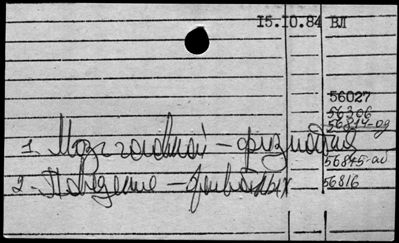 15.10.84 ВЛ
56027
56306
56814-од
1. Мозг головной - физиология
56845-ад
2. Поведение - животных
56816